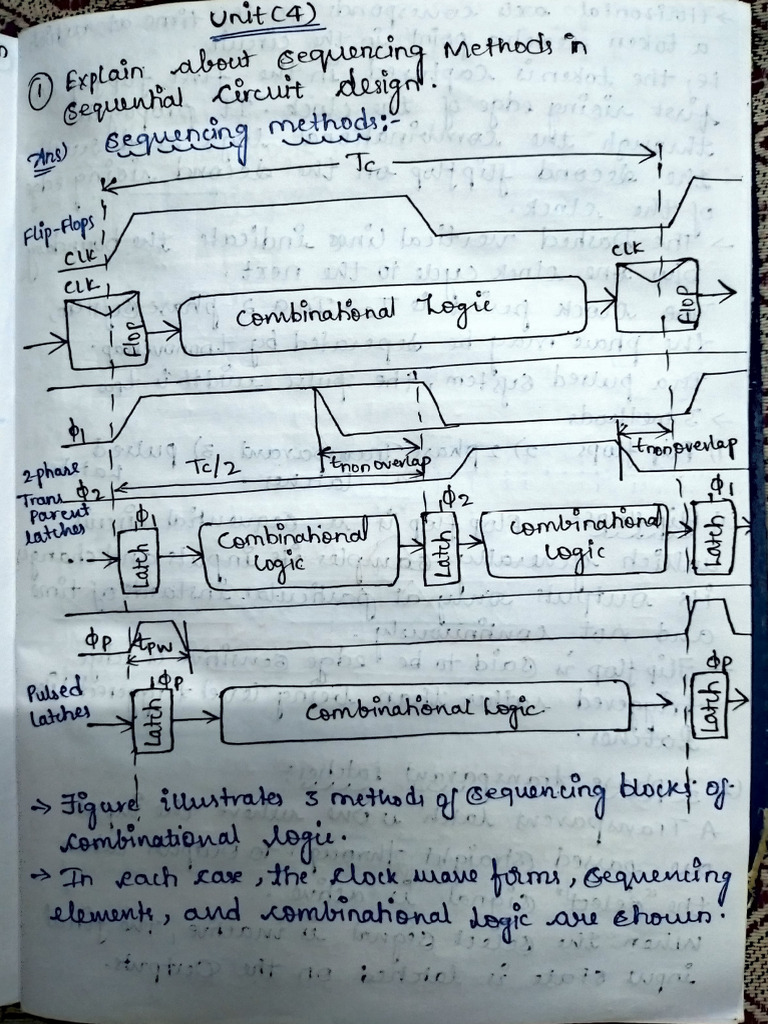 Unit (4)
① Explain about Sequencing Methods in
Sequential Circuit design.
Ans) Sequencing methods:-
Tc
Flip-Flops
CLK
CLK
CLK
Flop
Combinational Logic
Flop
ϕ1
tnonoverlap
tnonoverlap
Tc/2
2phase
Trans ϕ2
Parent
latches
ϕ1
ϕ2
ϕ1
Latch
Combinational
Logic
Latch
Combinational
Logic
Latch
ϕp
tpw
Pulsed
Latches
ϕp
ϕp
Latch
Combinational Logic
Latch
→ Figure illustrates 3 methods of Sequencing blocks of
combinational logic.
→ In each case, the clock wave forms, Sequencing
elements, and combinational Logic are shown.